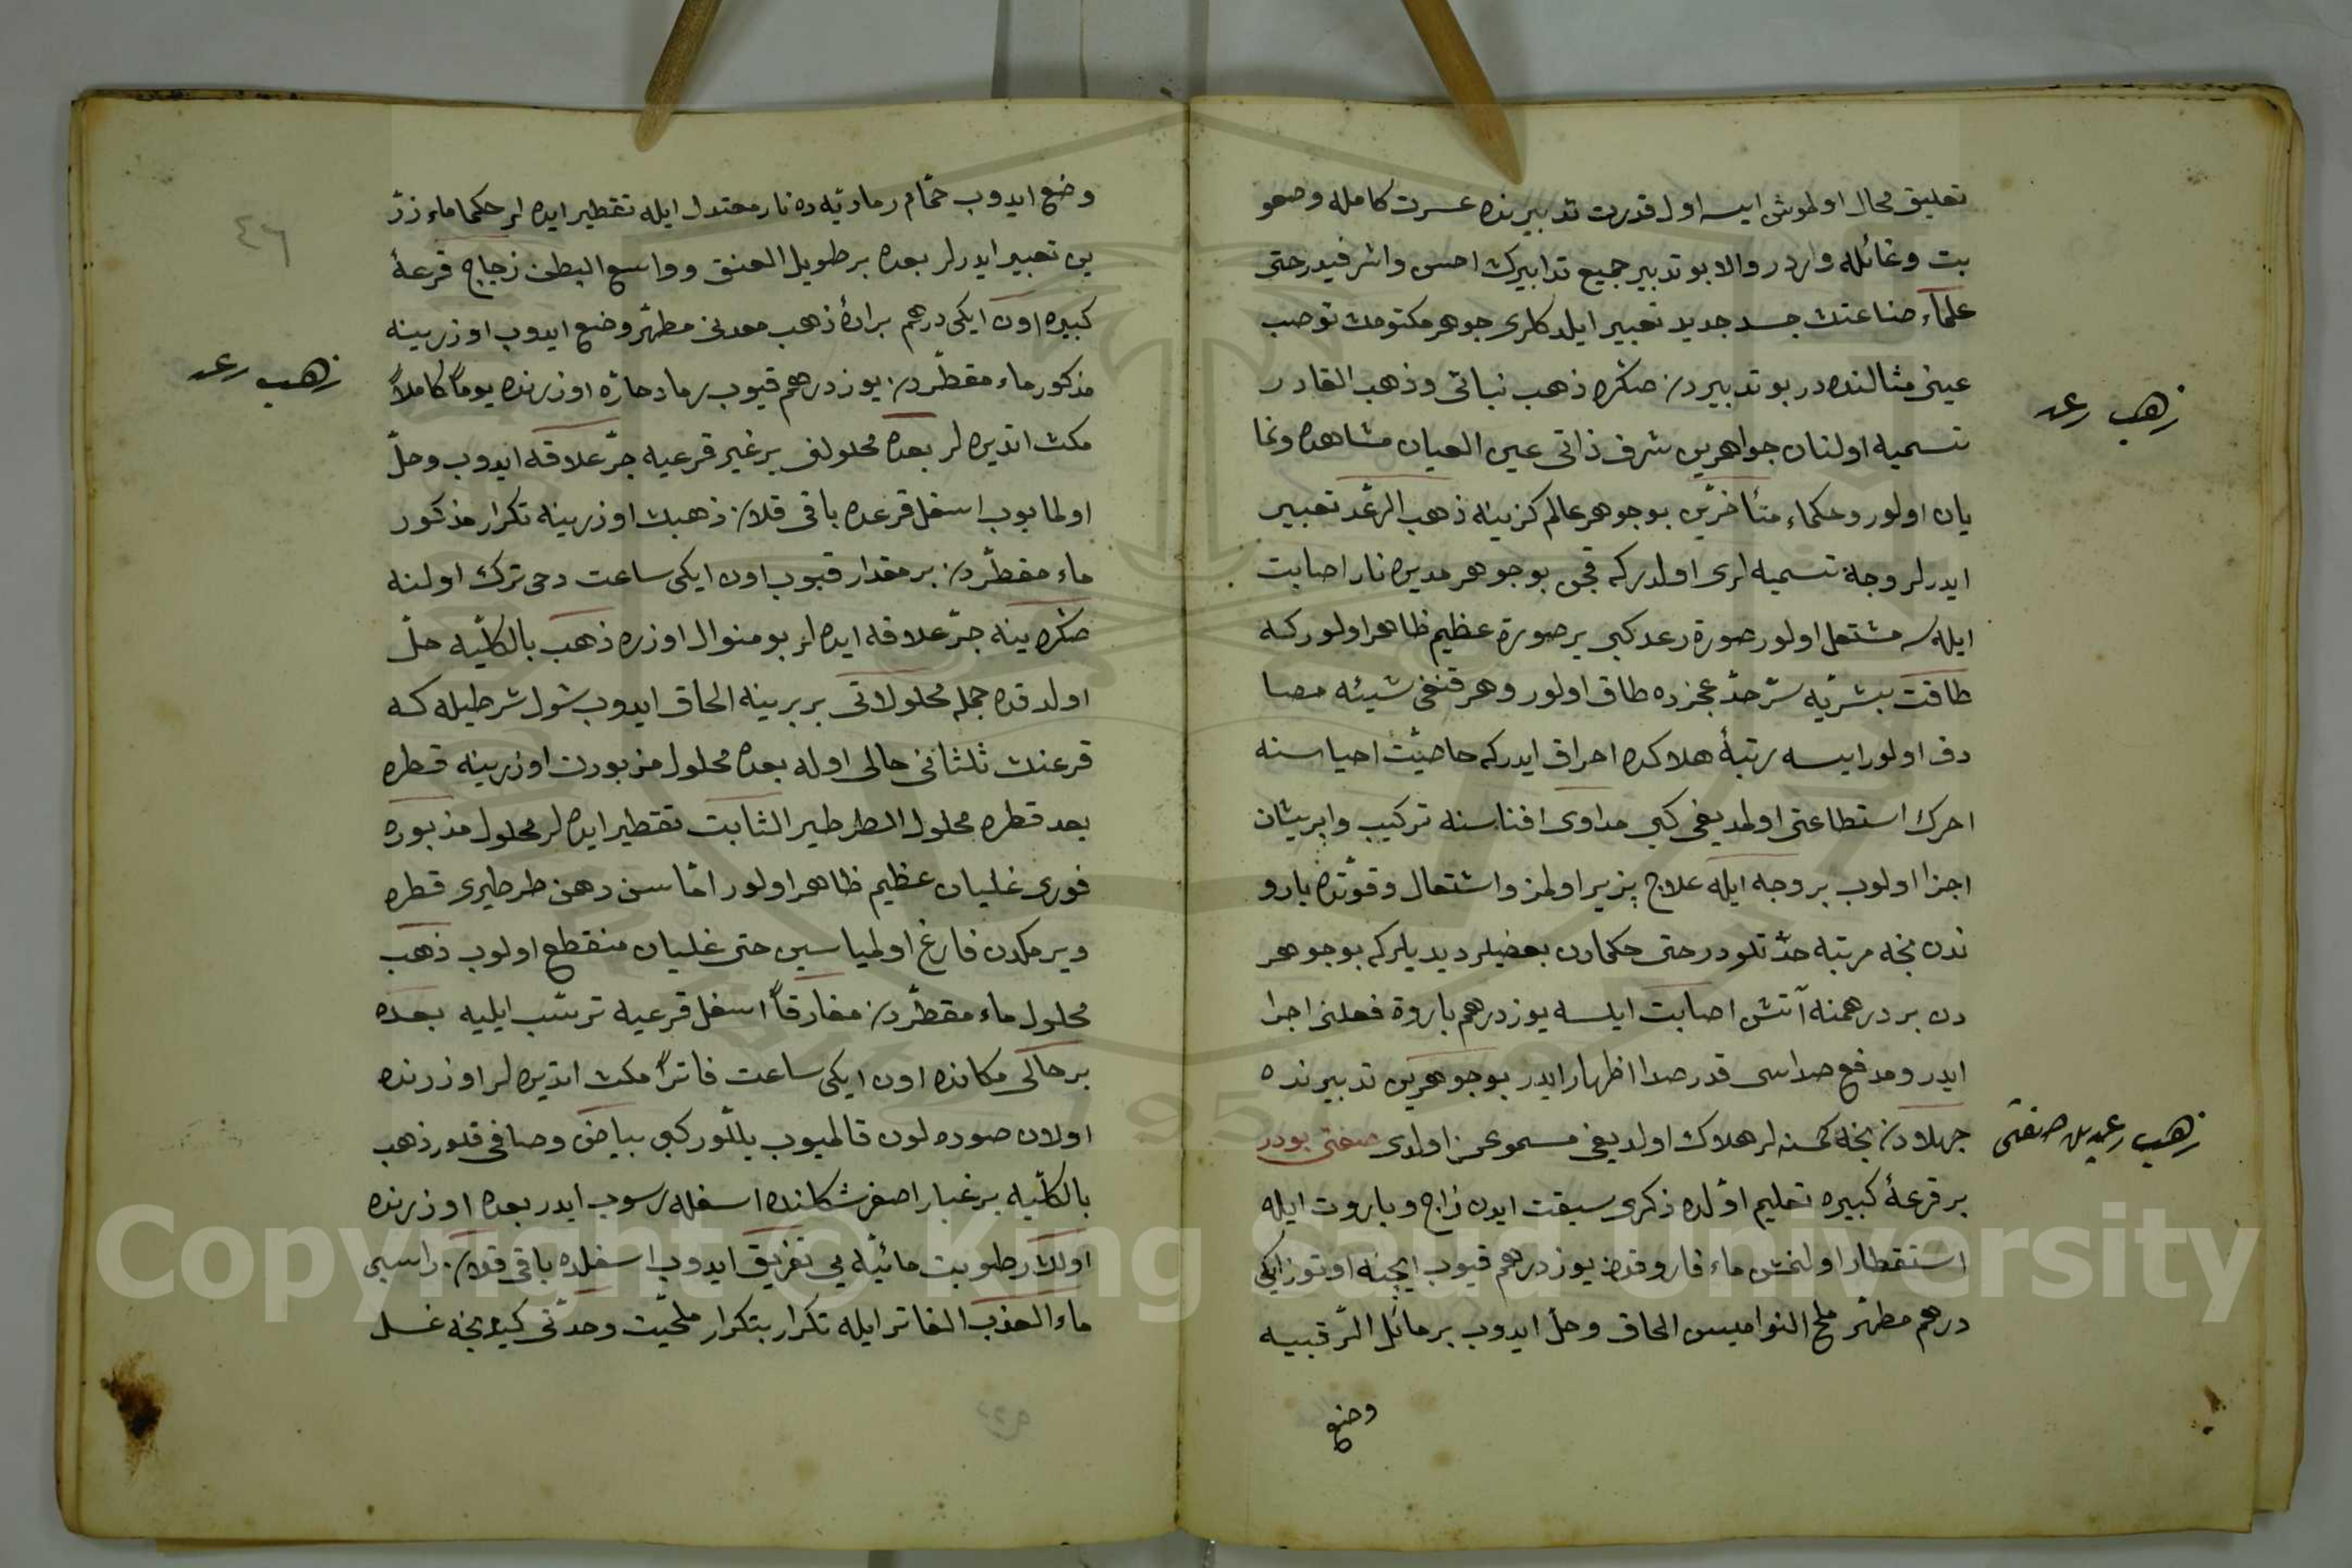 تعليق محال اولموش ايسه اول قدرت تدبيرنده عسرت كامله وصعو
بت وغائله واردر والا بو تدبير جميع تدابيرك احسن واشرفيدر حتى
علماء صناعتك جسد جديد تعبير ايلدكلرى جوهر مكتومك توصب
عينى مثالنده در بو تدبيردن صكره ذهب نباتى وذهب القادر
تسميه اولنان جواهرين شرف ذاتى عين العيان مشاهده ونما
يان اولور وحكماء متأخرين بو جوهر عالم كزينه ذهب الرعد تعبير
ايدرلر وجه تسميه لرى اولدركه قچن بو جوهر مديره نار اصابت
ايله سه مشتعل اولور صورة رعد كبى بر صورة عظيم ظاهر اولور كه
طاقت بشريه سر حد عجزده طاق اولور وهر قنغى شيئه مصا
دف اولور ايسه رتبهٔ هلاكده احراق ايدركه خاصيت احياسنه
احدك استطاعتى اولمديغى كبى مداوى افناسنه تركيب وپريشان
اجزا اولوب بر وجه ايله علاج پزير اولمز واشتعال وقوتده بارو
تدن نچه مرتبه حدتلودر حتى حكمادن بعضيلر ديديلركه بو جوهر
دن بر درهمنه آتش اصابت ايلسه يوز درهم باروة فعلنى اجرا
ايدر ومدفع صداسى قدر صدا اظهار ايدر بو جوهرين تدبيرنده
جهلادن نچه كمسنه لر هلاك اولديغى مسموعمز اولدى صفتى بودر
بر قرعهٔ كبيره تعليم اولده ذكرى سبقت ايدن زاج وباروت ايله
استقطار اولنمش ماء فاروقدن يوز درهم قيوب ايچنه اوتوز ايكى
درهم مطهر ملح النواميس الحاق وحل ايدوب بر مائل الرقبيه
وضع
ذهب رعد
ذهب رعدين صفتى
٤٦
وضع ايدوب حمام رماديه ده نار معتدل ايله تقطير ايده لر حكما ماء زر
ين تعبير ايدرلر بعده بر طويل العنق وواسع البطن زجاج قرعهٔ
كبيره اون ايكى درهم برادهٔ ذهب معدنى مطهر وضع ايدوب اوزرينه
مذكور ماء مقطردن يوز درهم قيوب رماد حاره اوزرنده يوماً كاملاً
مكث اتديره لر بعده محلولنى بر غير قرعيه جر علاقه ايدوب وحل
اولمايوب اسفل قرعده باقى قلان ذهبك اوزرينه تكرار مذكور
ماء مقطردن بر مقدار قيوب اون ايكى ساعت دخى ترك اولنه
صكره ينه جر علاقه ايده لر بو منوال اوزره ذهب بالكليه حل
اولدقده جمله محلولاتى بر برينه الحاق ايدوب شول شرطيله كه
قرعنك ثلثانى خالى اوله بعده محلول مزبورك اوزرينه قطره
بعد قطره محلول الطرطير الثابت تقطير ايده لر محلول مزبوره
فورى غليان عظيم ظاهر اولور اما سن دهن طرطيرى قطره
ويرمكدن فارغ اولمياسين حتى غليان منقطع اولوب ذهب
محلول ماء مقطردن مفارقاً اسفل قرعيه ترسب ايليه بعده
بر خالى مكانده اون ايكى ساعت فاتراً مكث اتديره لر اوزرنده
اولان صوده لون قالميوب بللور كبى بياض وصافى قلور ذهب
بالكليه بر غبار اصفر شكلنده اسفله رسوب ايدر بعده اوزرنده
اولان رطوبت مائيه يى تفريق ايدوب اسفلده باقى قلان راسبى
ماء العذب الفاتر ايله تكرار بتكرار ملحيت وحدتى كيدنجه غسل
ذهب رعد
Copyright © King Saud University